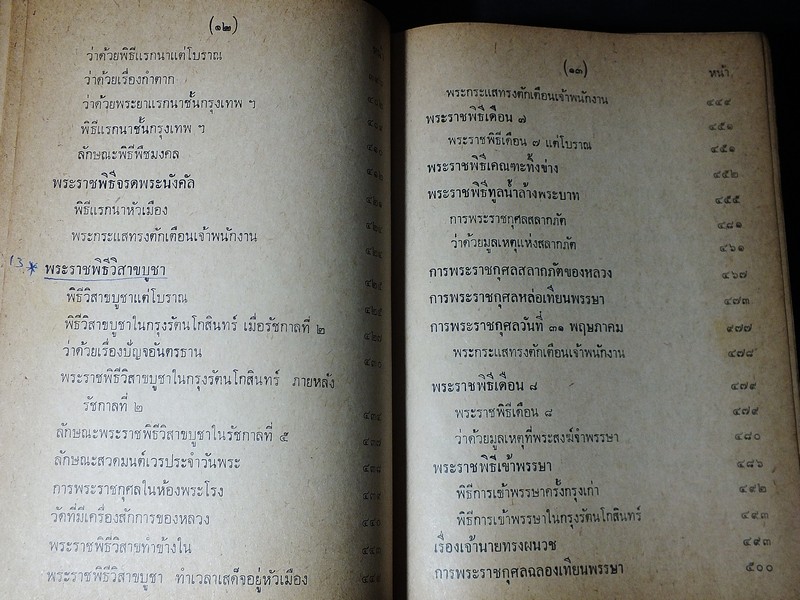 (๑๒)
ว่าด้วยพิธีแรกนาแต่โบราณ
ว่าด้วยเรื่องกำตาก
ว่าด้วยพระยาแรกนาชั้นกรุงเทพ ฯ
พิธีแรกนาชั้นกรุงเทพ ฯ
ลักษณะพิธีพืชมงคล
พระราชพิธีจรดพระนังคัล
พิธีแรกนาหัวเมือง
พระกระแสทรงตักเตือนเจ้าพนักงาน
13 * พระราชพิธีวิสาขบูชา
พิธีวิสาขบูชาแต่โบราณ
พิธีวิสาขบูชาในกรุงรัตนโกสินทร์ เมื่อรัชกาลที่ ๒
ว่าด้วยเรื่องปัญจอันตรธาน
พระราชพิธีวิสาขบูชาในกรุงรัตนโกสินทร์ ภายหลัง
รัชกาลที่ ๒
ลักษณะพระราชพิธีวิสาขบูชาในรัชกาลที่ ๕
ลักษณะสวดมนต์เวรประจำวันพระ
การพระราชกุศลในห้องพระโรง
วัดที่มีเครื่องสักการของหลวง
พระราชพิธีวิสาขทำข้างใน
พระราชพิธีวิสาขบูชา ทำเวลาเสด็จอยู่หัวเมือง
(๑๓)
หน้า
พระกระแสทรงตักเตือนเจ้าพนักงาน ๔๔๙
พระราชพิธีเดือน ๗ ๔๕๑
พระราชพิธีเดือน ๗ แต่โบราณ ๔๕๑
พระราชพิธีเคณฑะทิ้งข่าง ๔๕๒
พระราชพิธีทูลน้ำล้างพระบาท ๔๕๕
การพระราชกุศลสลากภัต ๔๘๑
ว่าด้วยมูลเหตุแห่งสลากภัต ๔๖๑
การพระราชกุศลสลากภัตของหลวง ๔๖๗
การพระราชกุศลหล่อเทียนพรรษา ๔๗๓
การพระราชกุศลวันที่ ๓๑ พฤษภาคม ๙๗๗
พระกระแสทรงตักเตือนเจ้าพนักงาน ๔๗๘
พระราชพิธีเดือน ๘ ๔๗๙
พระราชพิธีเดือน ๘ ๔๗๙
ว่าด้วยมูลเหตุที่พระสงฆ์จำพรรษา ๔๘๐
พระราชพิธีเข้าพรรษา ๔๘๖
พิธีการเข้าพรรษาครั้งกรุงเก่า ๔๙๒
พิธีการเข้าพรรษาในกรุงรัตนโกสินทร์ ๔๙๓
เรื่องเจ้านายทรงผนวช ๔๙๓
การพระราชกุศลฉลองเทียนพรรษา ๕๐๐